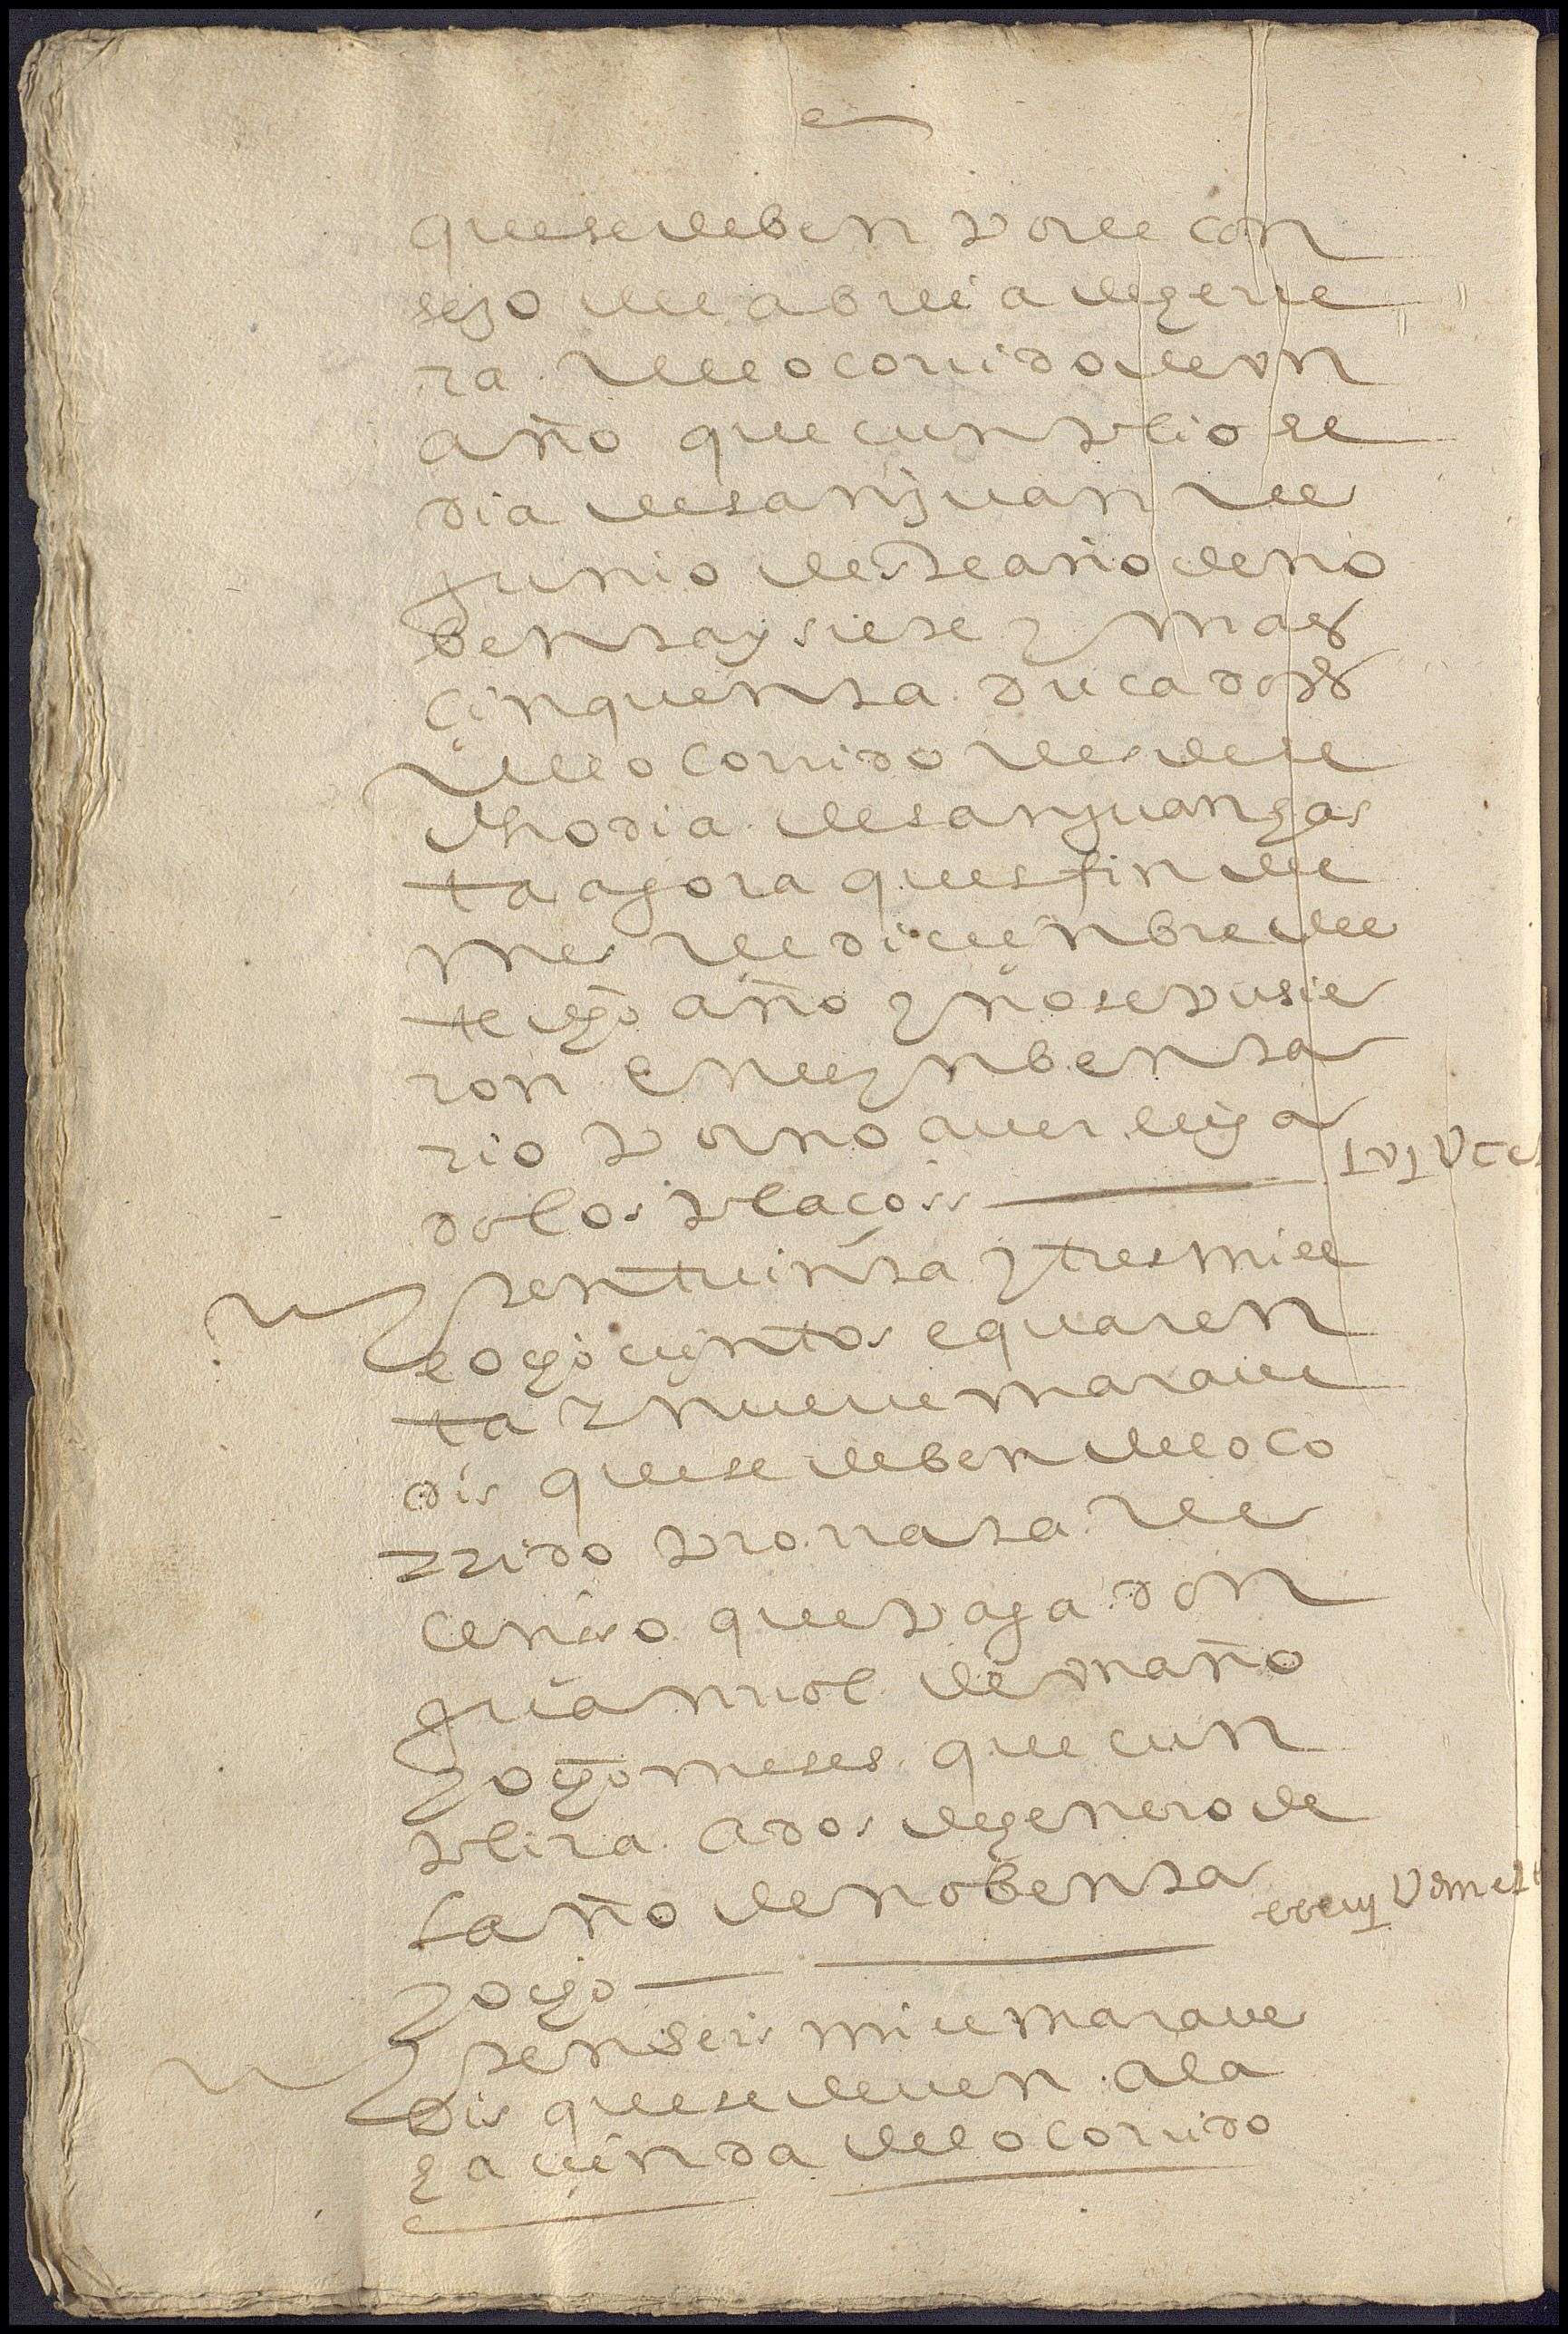 que se deben por el con
sejo del abilla de gene
ra de lo corrido de un
año que cunplio el
dia de san juan de
junio deste año de no
benta y siete y mas
cinquenta ducados
de lo corrido desde el
dho dia de san juan has
ta agora ques fin de
mes de dicienbre des
te dho año y no se pusie
ron en el ynbenta
rio por no aver llega
do los plaços
yten treinta y tres mill
e ochocientos e quaren
ta y nueve marave
dis que se deben de lo co
rrido prorrata del
censo que paga don
de un año
y ocho meses que cun
plira a dos de henero de
l año de nobenta
y ocho
yten seis mill marave
dis que se deven a la
hacienda de lo corrido